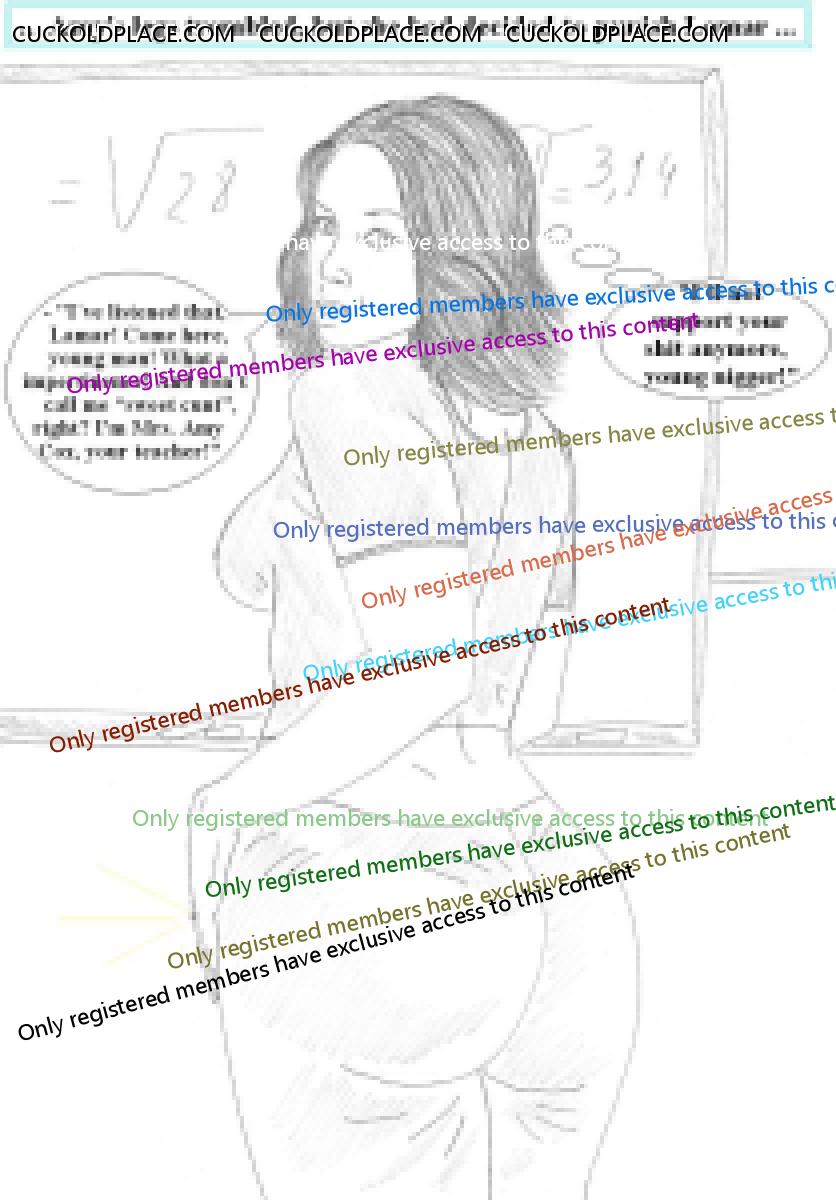 ... Amy's legs trembled, but she had decided to punish Lamar ...
CUCKOLDPLACE.COM CUCKOLDPLACE.COM CUCKOLDPLACE.COM
= √28
= 3,14
have exclusive access to this con
- "I've listened that,
Lamar! Come here,
young man! What
call me "sweet cunt",
right? I'm Mrs. Amy
Cox, your teacher!"
support your
shit anymore,
young nigger!"
Only registered members have exclusive access to this c
Only registered members have exclusive access to this content
Only registered members have exclusive access to
Only registered members have exclusive access to this
Only registered members have exclusive access
Only registered members have exclusive access to thi
Only registered members have exclusive access to this content
Only registered members have exclusive access to this content
Only registered members have exclusive access to this content
Only registered members have exclusive access to this content
Only registered members have exclusive access to this content